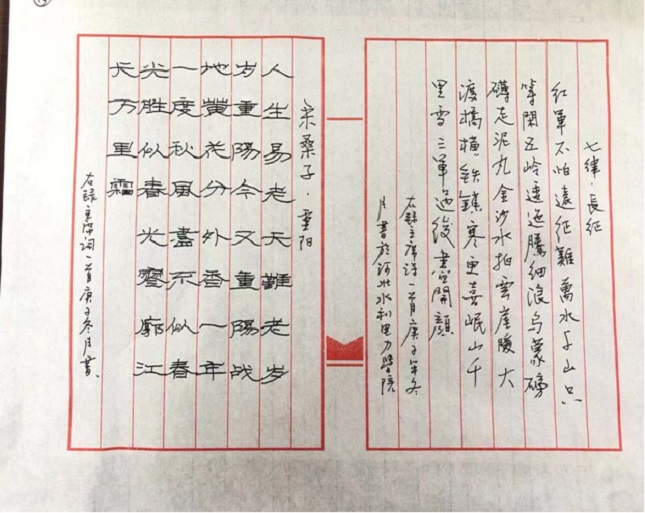 七律·長征
红軍不怕遠征難萬水千山只
等閑五岭逶迤騰細浪烏蒙磅
礴走泥丸金沙水拍雲崖暖大
渡橋橫铁鎖寒更喜岷山千
里雪三軍過後盡開顔
右録主席詩一首庚子年冬
月書於河北水利电力學院
采桑子·重阳
人生易老天難老岁
岁重陽今又重陽战
地黄花分外香一年
一度秋風勁不似春
光胜似春光寥廓江
天万里霜
右録主席詞一首庚子冬月書